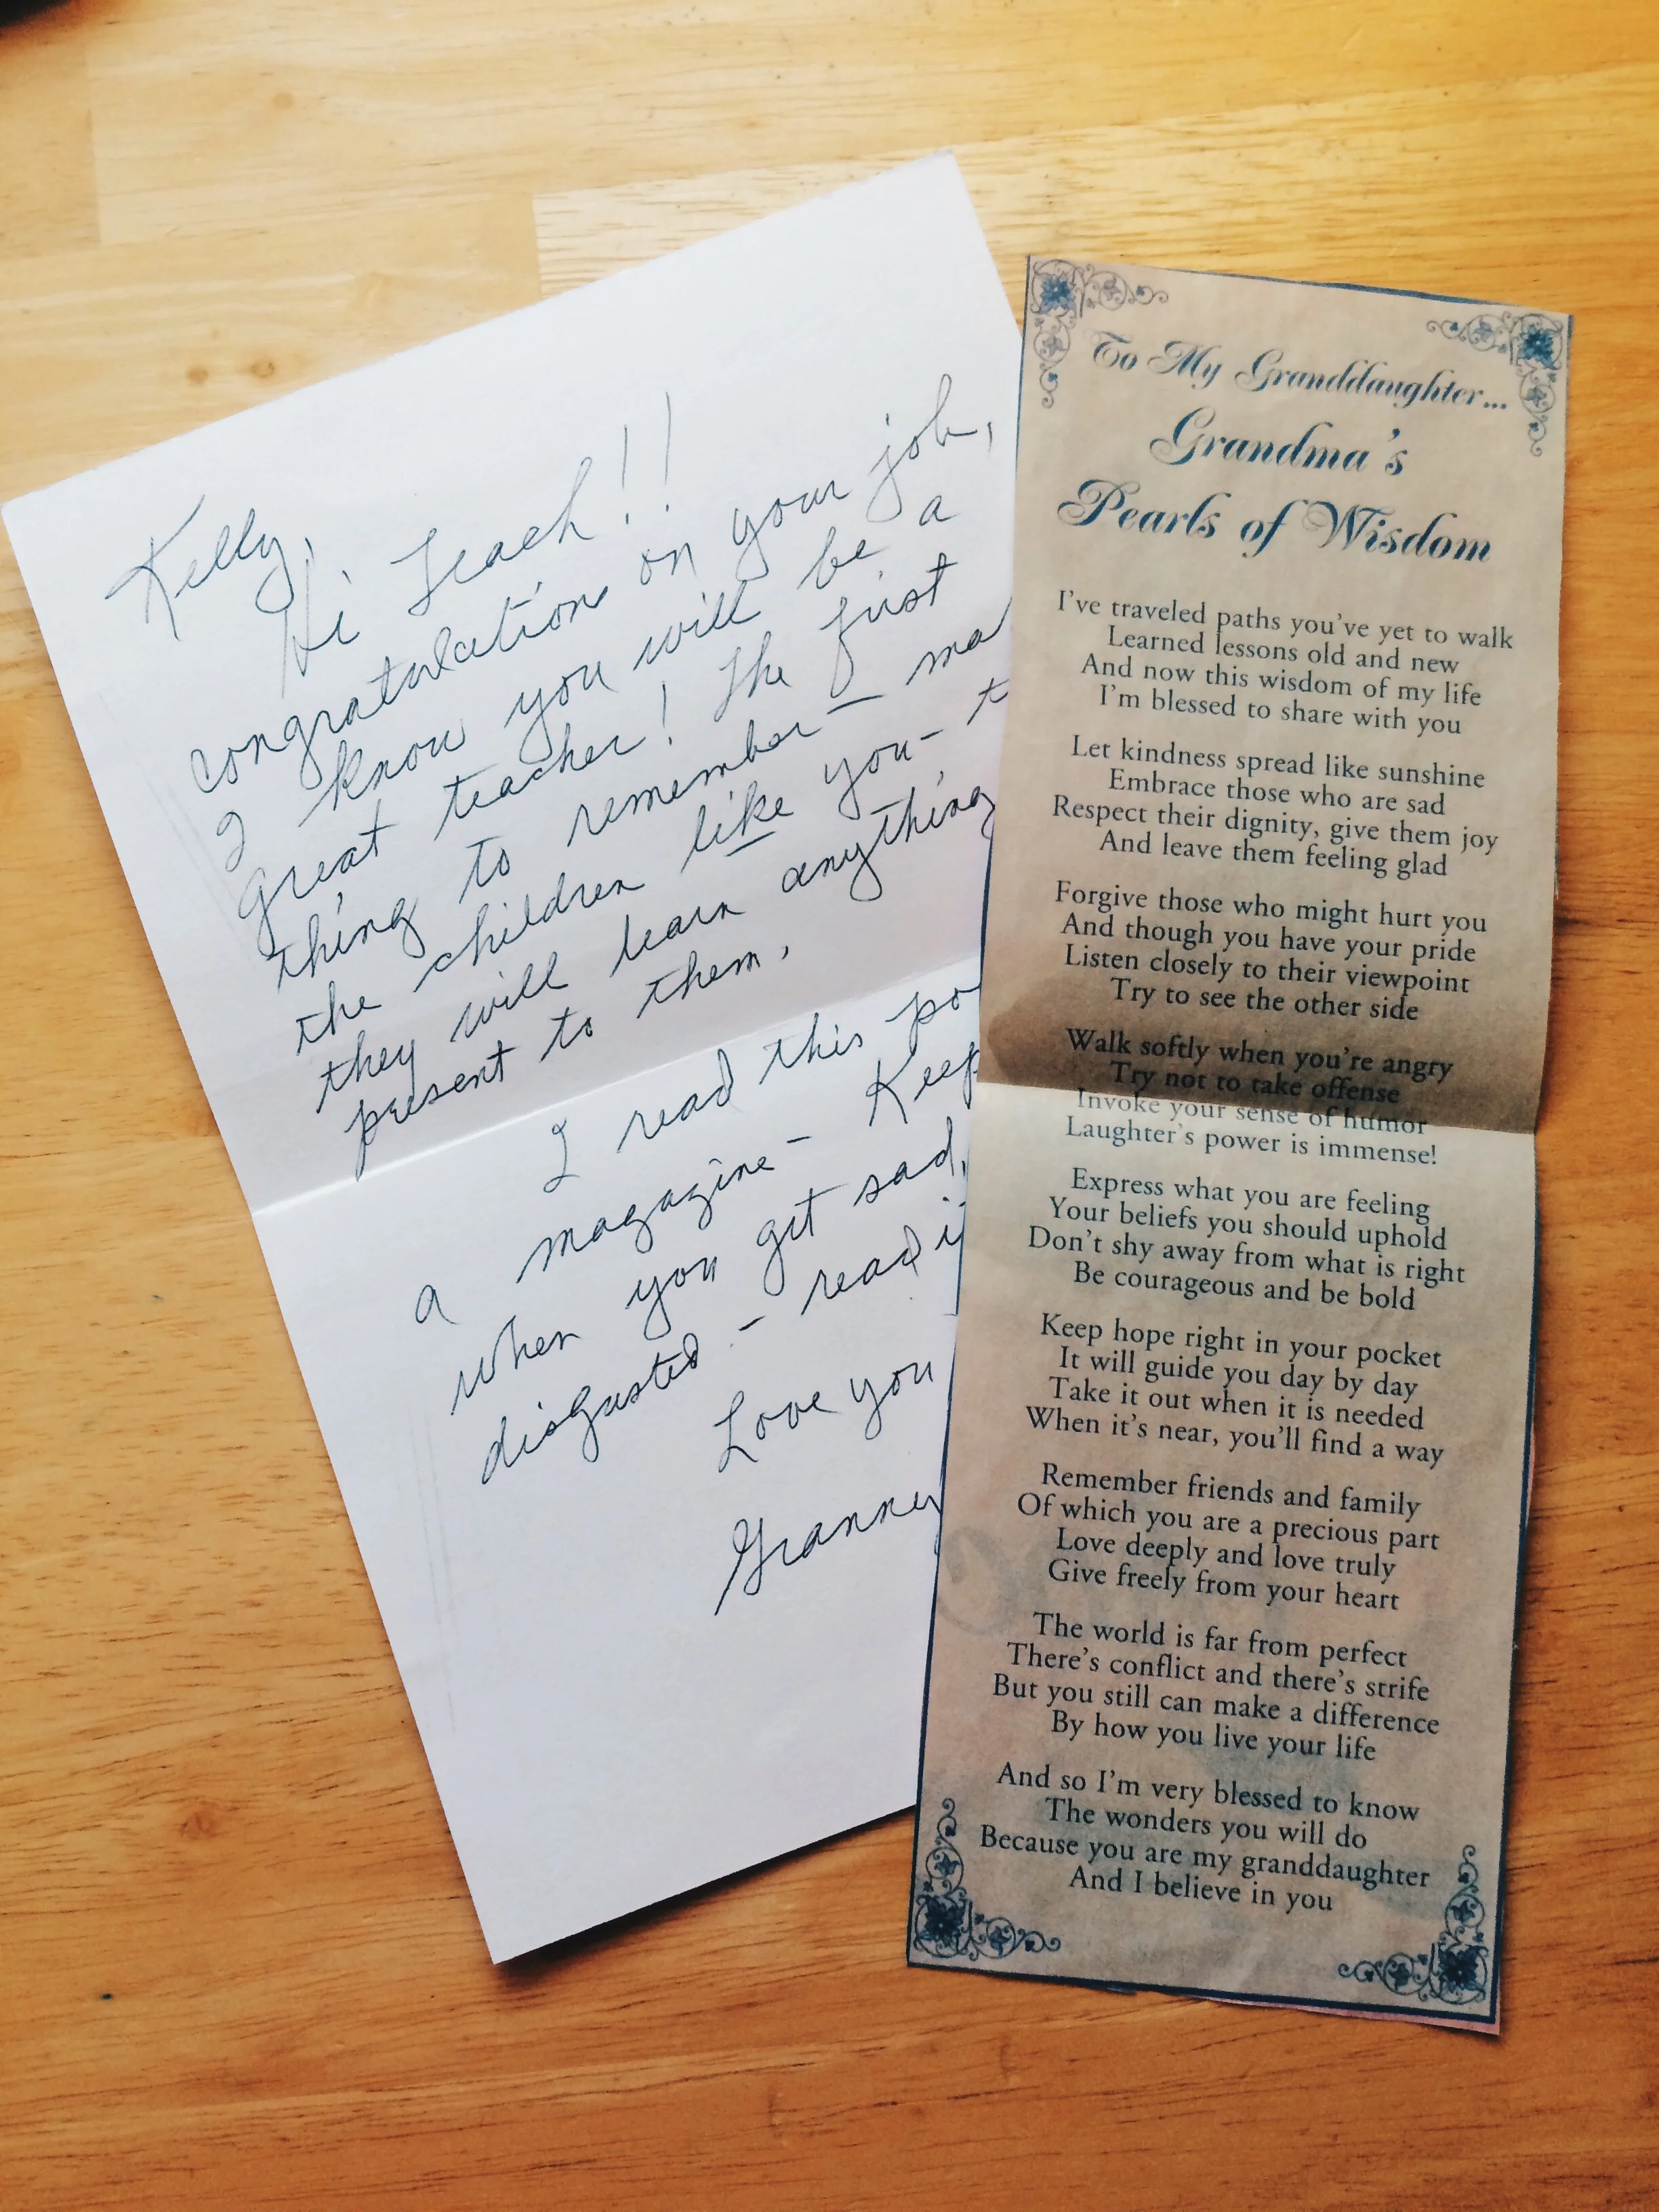 Kelly,
Hi Teach!!
congratulations on your job,
I know you will be a
great teacher! The first
thing to remember - ma
the children like you - t
they will learn anything
present to them.
I read this po
a magazine - Keep
when you get sad,
disgusted - read i
Love you
Granny
To My Granddaughter...
Grandma's
Pearls of Wisdom
I've traveled paths you've yet to walk
Learned lessons old and new
And now this wisdom of my life
I'm blessed to share with you
Let kindness spread like sunshine
Embrace those who are sad
Respect their dignity, give them joy
And leave them feeling glad
Forgive those who might hurt you
And though you have your pride
Listen closely to their viewpoint
Try to see the other side
Walk softly when you're angry
Try not to take offense
Invoke your sense of humor
Laughter's power is immense!
Express what you are feeling
Your beliefs you should uphold
Don't shy away from what is right
Be courageous and be bold
Keep hope right in your pocket
It will guide you day by day
Take it out when it is needed
When it's near, you'll find a way
Remember friends and family
Of which you are a precious part
Love deeply and love truly
Give freely from your heart
The world is far from perfect
There's conflict and there's strife
But you still can make a difference
By how you live your life
And so I'm very blessed to know
The wonders you will do
Because you are my granddaughter
And I believe in you